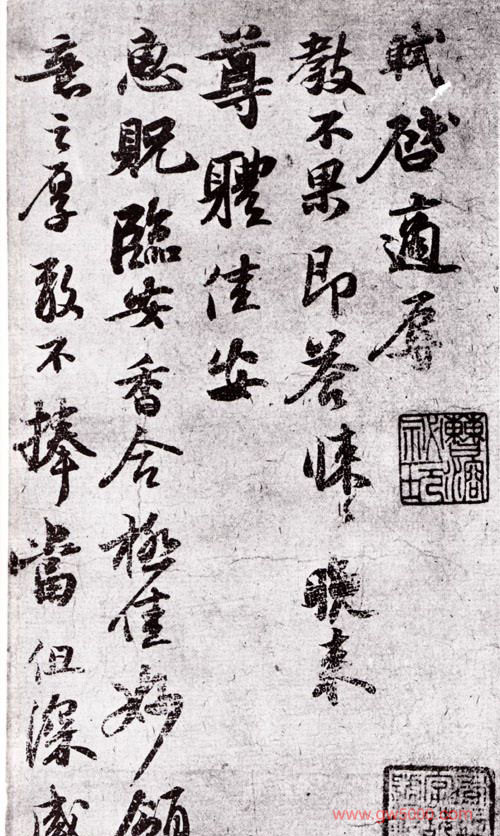 軾啓適辱
教不果即答悚〻晚來
尊體佳安
惠貺臨安香合極佳妙領
意之厚敢不捧當但深感